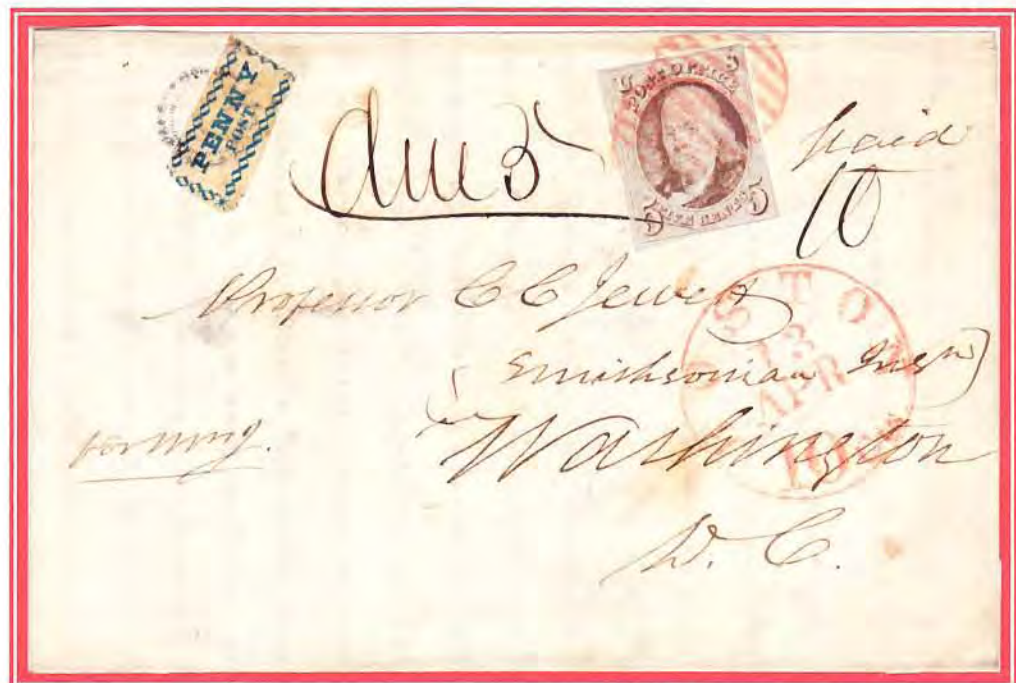 PENNY
POST.
5 5
POST OFFICE
FIVE CENTS
5 5
Due 5
Paid
10
Professor C C Jewett
Smithsonian Insn)
Washington
D. C.
STO
13
APR